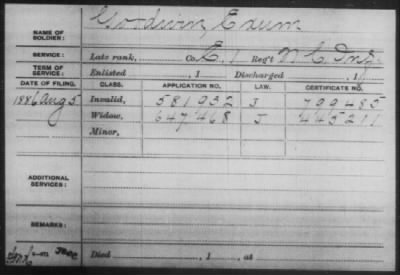 NAME OF SOLDIER: Goodwin, Exum
SERVICE: Late rank, Co. E, 1 Reg't N.C. Inf.
TERM OF SERVICE: Enlisted , 1 Discharged , 1
DATE OF FILING. CLASS. APPLICATION NO. LAW. CERTIFICATE NO.
1886 Aug 5 Invalid, 581932 J 799485
Widow, 647468 J 445211
Minor,
ADDITIONAL SERVICES:
REMARKS:
Died , 1 , at